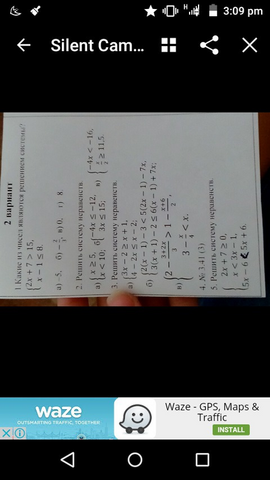 3:09 pm
Silent Cam...
2 вариант
1. Какие из чисел являются решением системы?
{2x + 7 > 15,
x − 1 ≤ 8.
а) −5, в) 0, г) 8
2. Решить систему неравенств.
а) {x ≥ 5, б) {−4x ≤ −12, в) {−4x < −16,
x < 10; 3x ≤ 15; ≥ 11,5.
3. Решить систему неравенств.
а) {3x − 2 ≥ x + 1,
4 − 2x ≤ x − 2;
б) {2(x − 1) − 3 < 5(2x − 1) − 7x,
3(x + 1) − 2 ≤ 6(x − 1) + 7x;
в) {2 − (3+2x)/3 > 1 − (x+6)/2,
3 − x/4 < x.
4. № 3.41 (3)
5. Решить систему неравенств.
{2x + 7 ≥ 0,
x < 3x − 1,
5x − 6 < 5x + 6.
waze
OUTSMARTING TRAFFIC, TOGETHER
Waze - GPS, Maps & Traffic
INSTALL